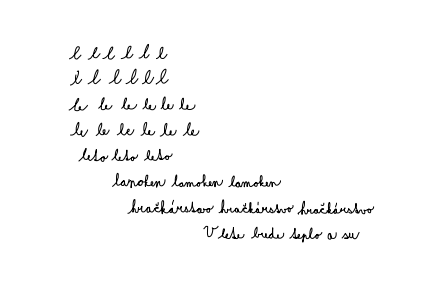 l l l l l l
l l l l l l
le le le le le le
le le le le le le
leto leto leto
lanoken lamoken lamoken
hračkárstovo hračkárstvo hračkárstvo
V lete bude teplo a su